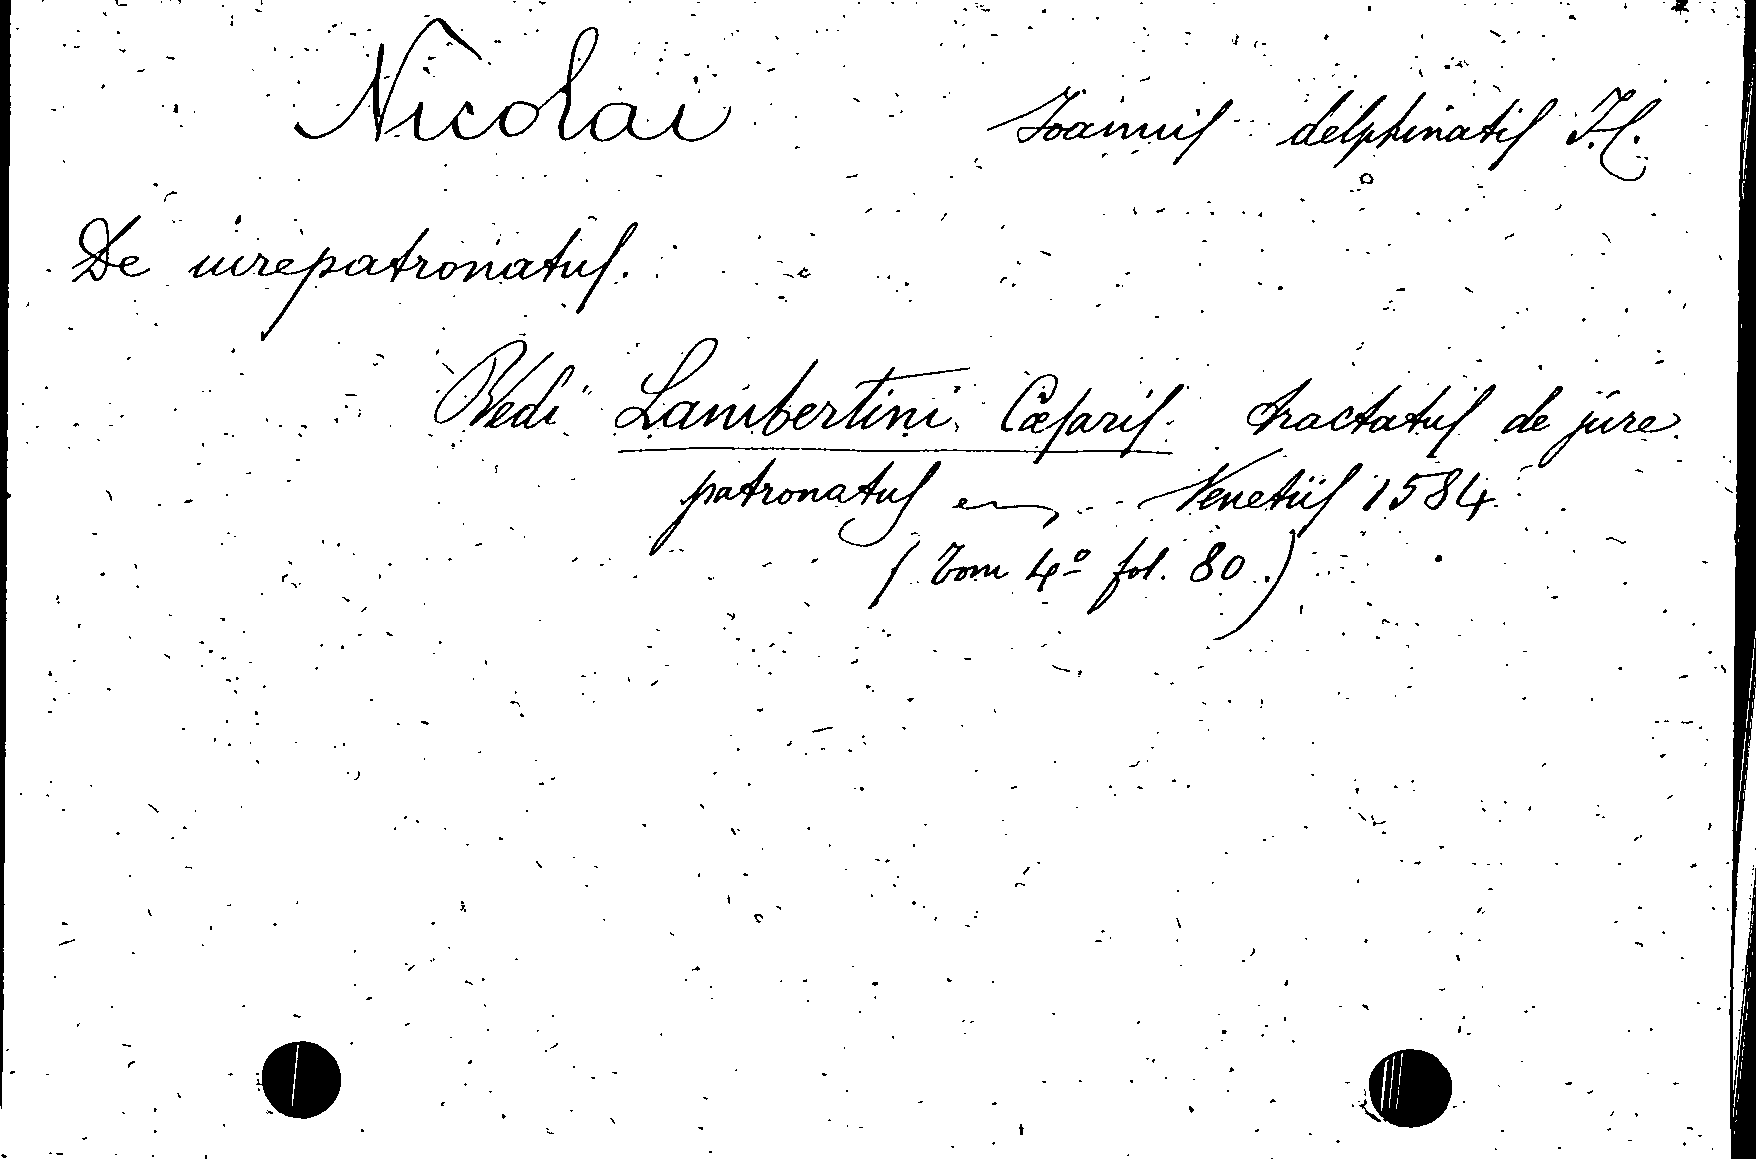 Nicolai Ioannis delphinatis J.C.
De iurepatronatus.
Vedi Lambertini Cæsaris tractatus de jure
patronatus Venetiis 1584
(Tom 4º fol. 80.)